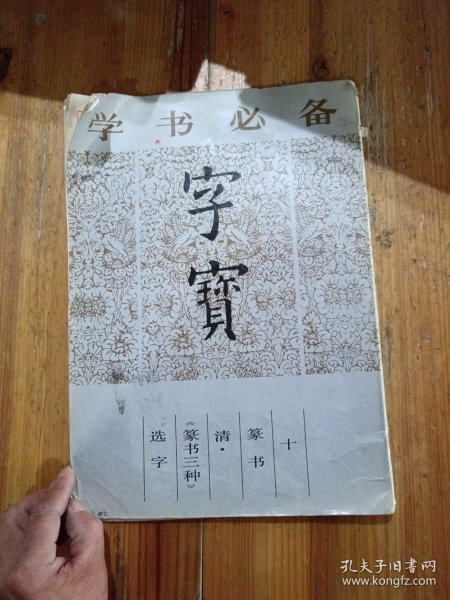 学书必备
字寳
十
篆书
清·
《篆书三种》
选字
孔夫子旧书网
www.kongfz.com